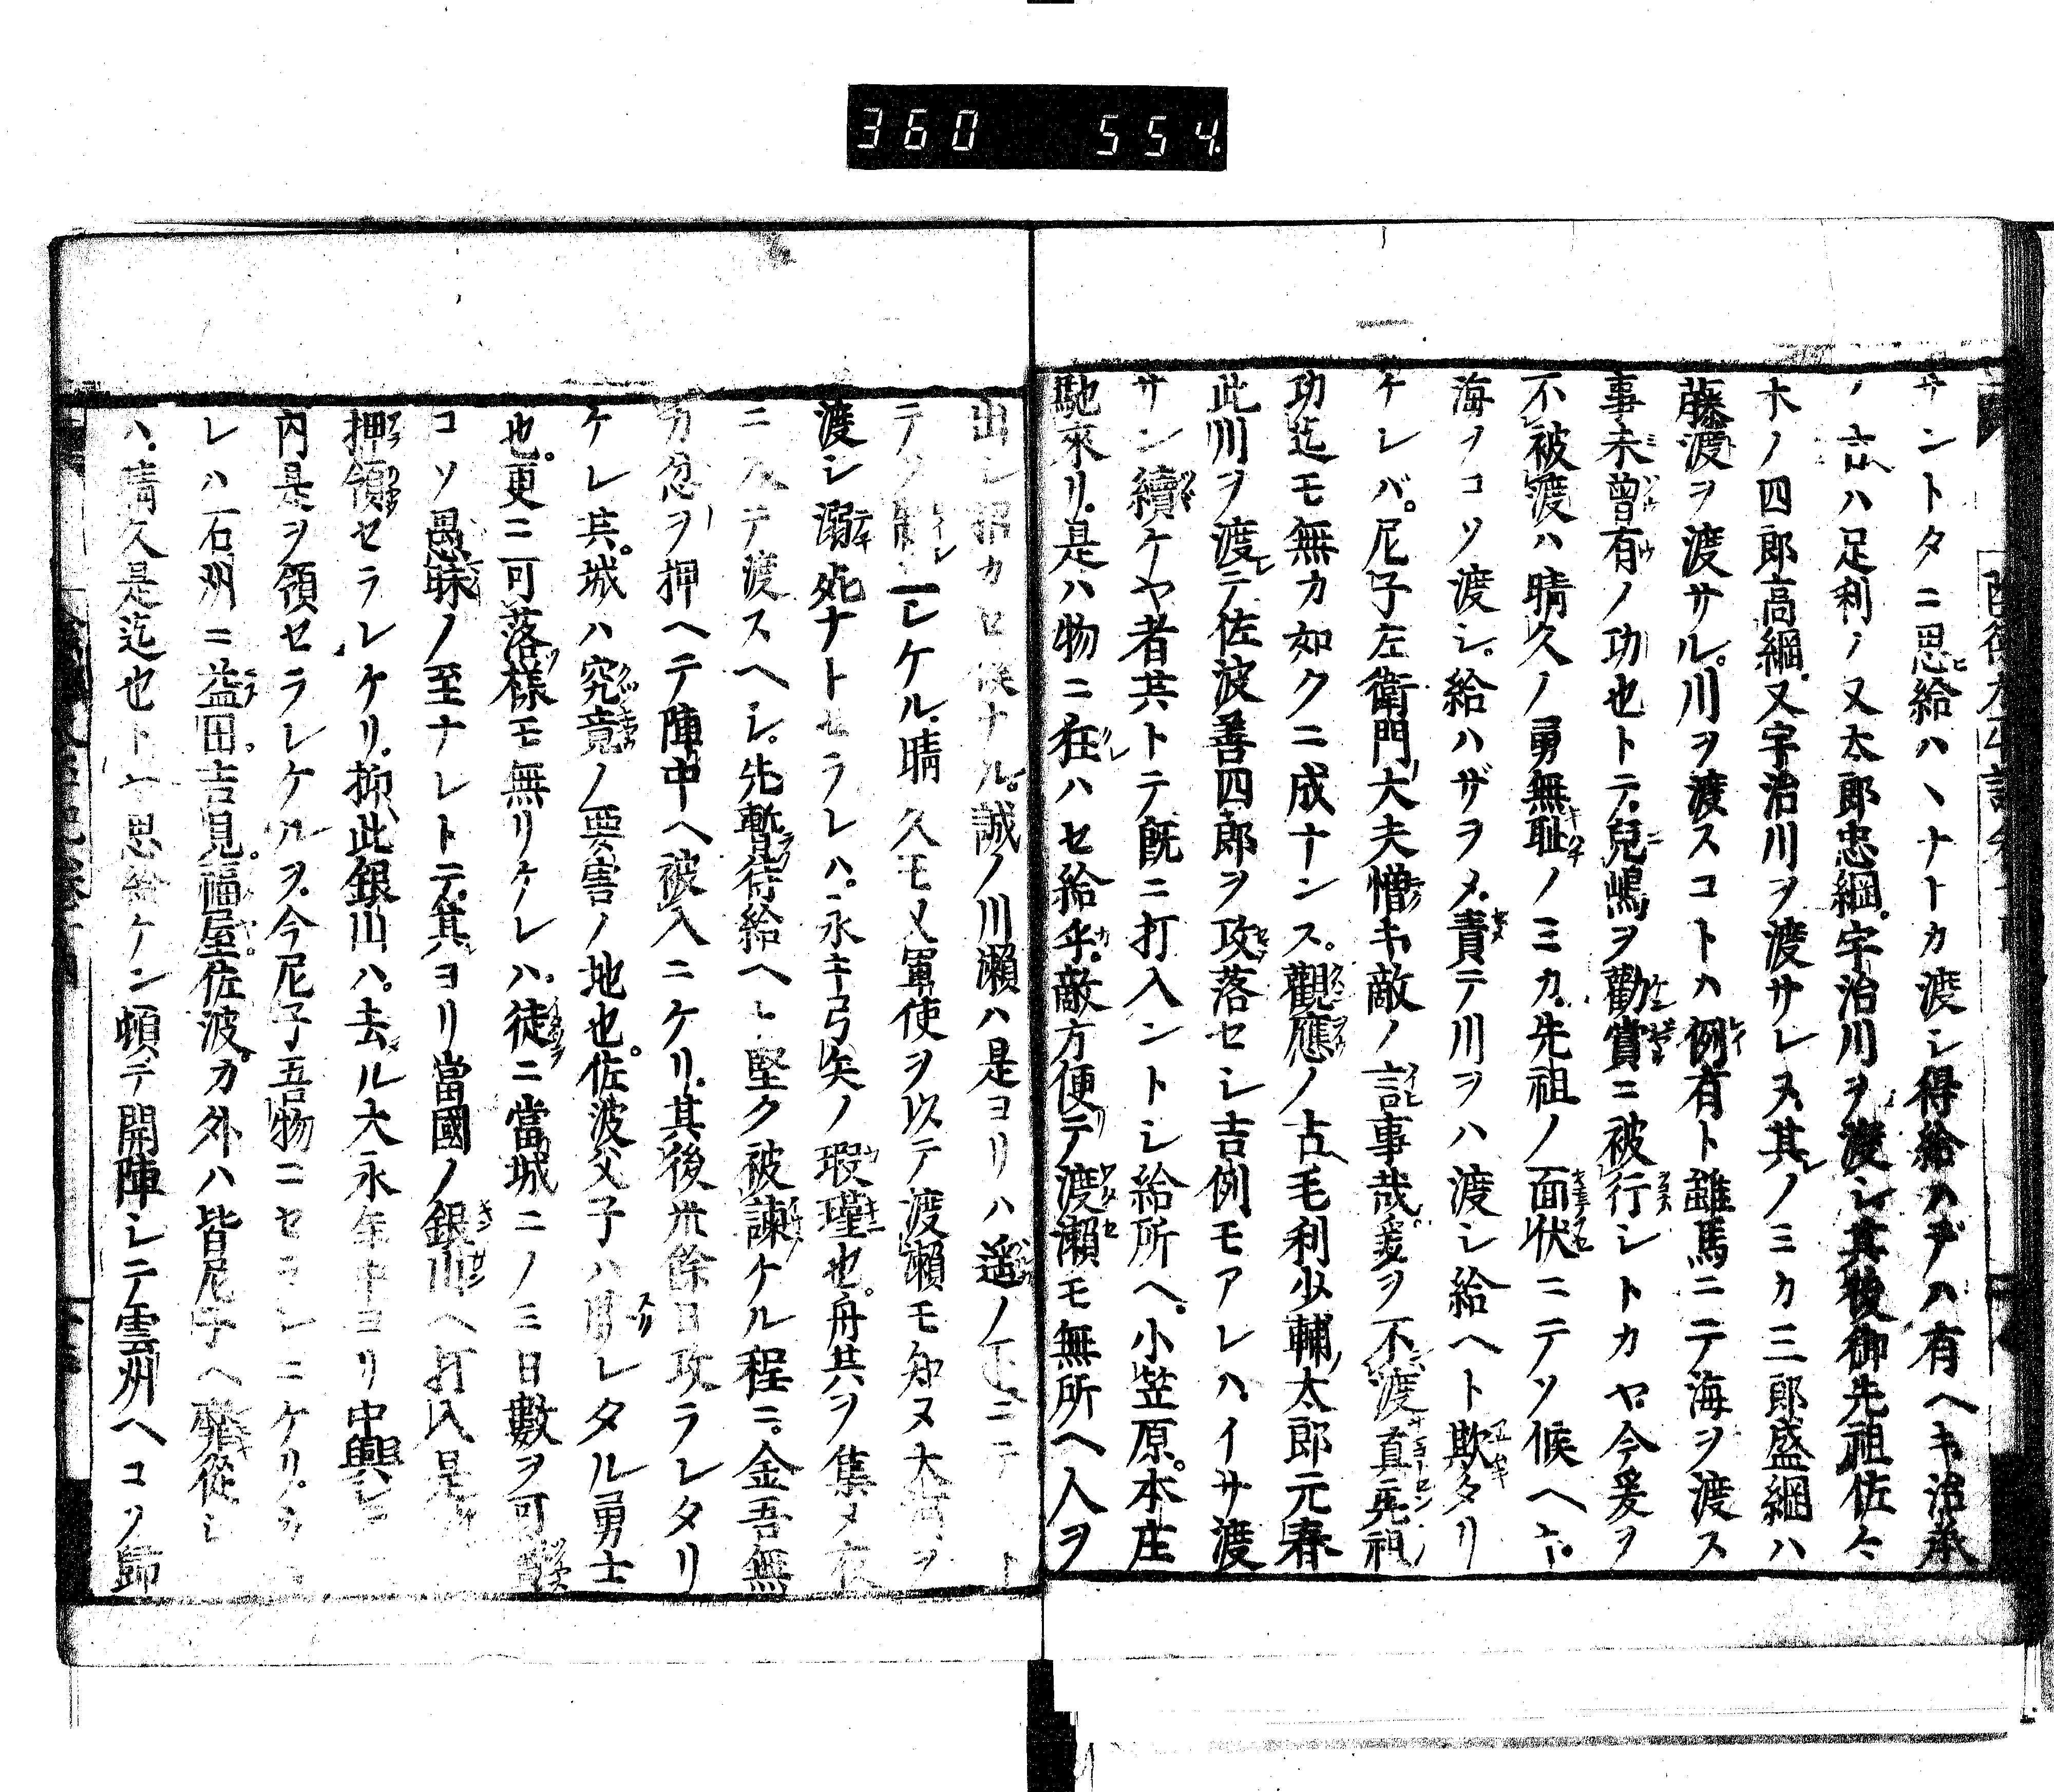 360 554
サントタニ思給ハヽナトカ渡シ得給ハデハ有ヘキ治承
ノ古ハ足利ノ又太郎忠綱宇治川ヲ渡シ其後御先祖佐々
木ノ四郎高綱又宇治川ヲ渡サレヌ其ノミカ三郎盛綱ハ
藤渡ヲ渡サル川ヲ渡スコトハ例有ト雖馬ニテ海ヲ渡ス
事未曾有ノ功也トテ兒嶋ヲ勸賞ニ被行シトカヤ今爰ヲ
不被渡ハ晴久ノ勇無耻ノミカ先祖ノ面伏ニテソ候ヘト
海ヲコソ渡シ給ハザラメ責テ川ヲハ渡シ給ヘト欺タリ
ケレバ尼子左衛門大夫憎キ敵ノ言事哉爰ヲ不渡眞先祖ノ
功迄モ無カ如クニ成ナンス觀應ノ古毛利少輔太郎元春
此川ヲ渡テ佐波善四郎ヲ攻落セシ吉例モアレハイサ渡
サン續ケヤ者共トテ既ニ打入ントシ給所ヘ小笠原本庄
馳來リ是ハ物ニ狂ハセ給乎敵方便テ渡瀬モ無所ヘ人ヲ
出シ招カセ候ナル誠ノ川瀬ハ是ヨリハ遥ノ下ニテ ト
テ制シケル晴久モ又軍使ヲ以テ渡瀬モ知ヌ大河ヲ
渡シ溺死ナトセラレハ永キ弓矢ノ瑕瑾也舟共ヲ集メ
ニテ渡スヘシ先暫待給ヘト堅ク被諫ケル程ニ金吾無
力忿ヲ押ヘテ陣中ヘ被入ニケリ其後廿餘日攻ラレタリ
ケレ共城ハ究竟ノ要害ノ地也佐波父子ハ勝レタル勇士
也更ニ可落様モ無リケレハ徒ニ當城ニノミ日數ヲ可
コソ愚昧ノ至ナレトテ其ヨリ當國ノ銀山ヘ打入是
押領セラレケリ抑此銀山ハ去ル大永年中ヨリ中興
内是ヲ領セラレケルヲ今尼子吾物ニセラレニケリ
レハ石州ニ益田吉見福屋佐波カ外ハ皆尼子ヘ從シ
ハ晴久是迄也トヤ思給ケン頓テ開陣シテ雲州ヘコソ歸